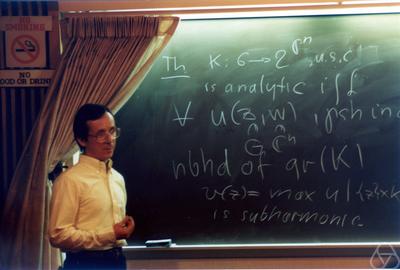 NO
SMOKING
NO
FOOD OR DRINK
Th K: G → 2^ℂⁿ, u.s.c
is analytic iff
∀ u(z,w), psh in a
G ℂⁿ
nbhd of gr(K)
v(z) = max u | {z}×K
is subharmonic.